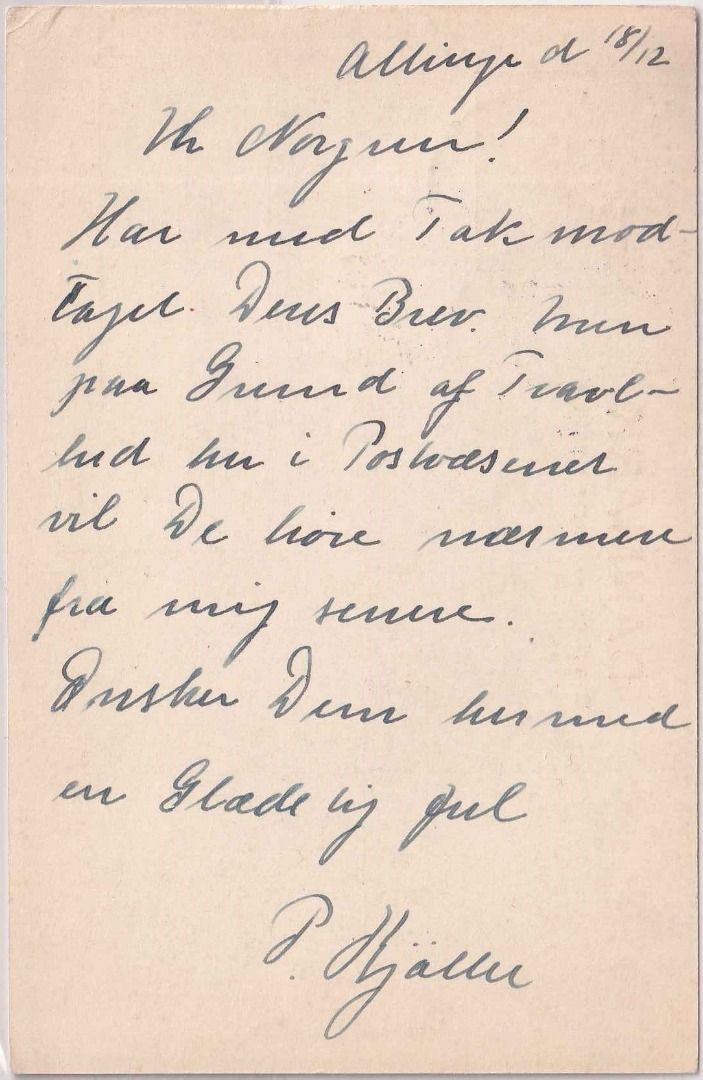 Allinge d 18/12
Hr Norgren!
Har med Tak mod-
taget Deres Brev. Men
paa Grund af Travl-
hed her i Postvæsenet
vil De høre nærmere
fra mig senere.
Ønsker Dem hermed
en Glædelig Jul
P. Kjöller